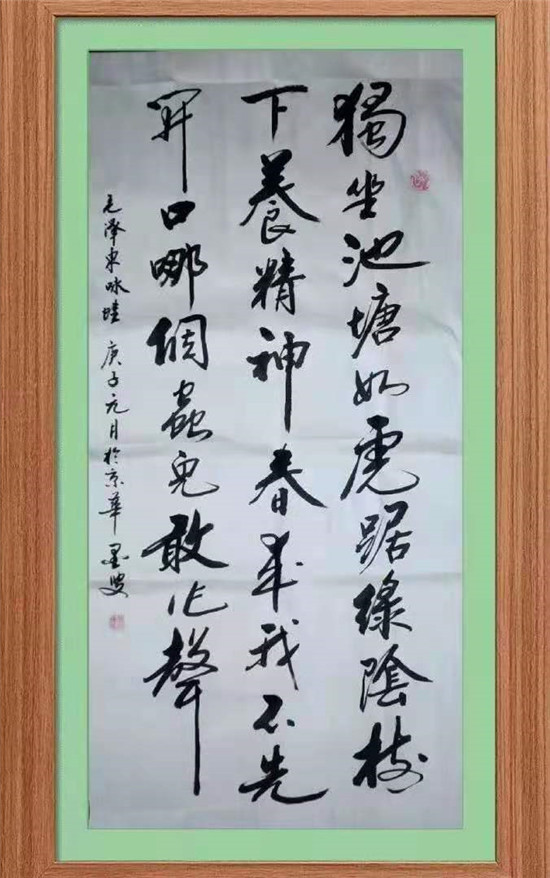 獨坐池塘如虎踞綠陰樹
下養精神春來我不先
開口哪個蟲兒敢作聲
毛泽東咏蛙 庚子元月於京華 墨叟